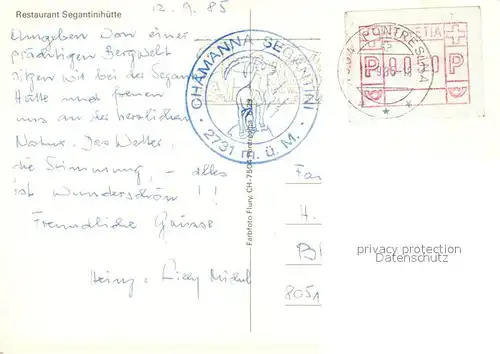 Restaurant Segantinihütte
12.9.85
Umgeben von einer
prächtigen Bergwelt
sitzen wir bei der Segan
Hütte und freuen
uns an der herrlichen
Natur. Das Wetter,
die Stimmung, – alles
ist wunderschön !!
Freundliche Grüsse
Heinz + Lilly
CHAMANNA SEGANTINI
2731 m.ü.M.
Farbfoto Flury, CH-7504 Pontresina
PONTRESINA
HELVETIA
P P P
Fa
H.
8051
privacy protection
Datenschutz